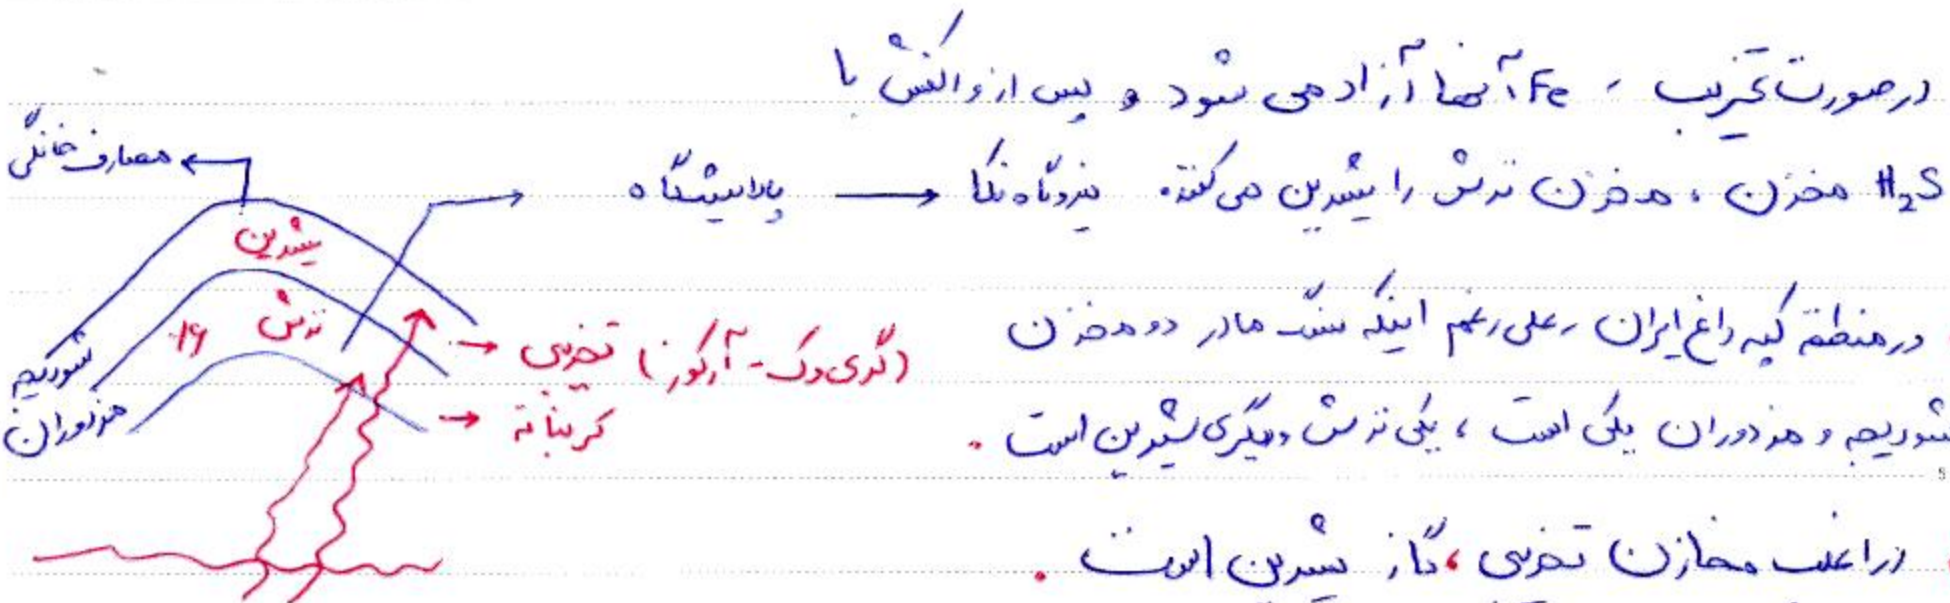 در صورت تخریب ، Fe آنها آزاد می شود و پس از واکنش با
H₂S مخزن ، مخزن ترش را شیرین می کند. نیروگاه نکا → پالایشگاه
مصارف خانگی
در منطقه کپه داغ ایران ، علی رغم اینکه سنگ مادر دو مخزن
شوریجه و مزدوران یکی است ، یکی ترش و دیگری شیرین است .
در اغلب مخازن تخریبی ، گاز شیرین است .
شیرین
ترش
شوریجه
مزدوران
→ تخریبی (گری وک - آرکوز)
→ کربناته